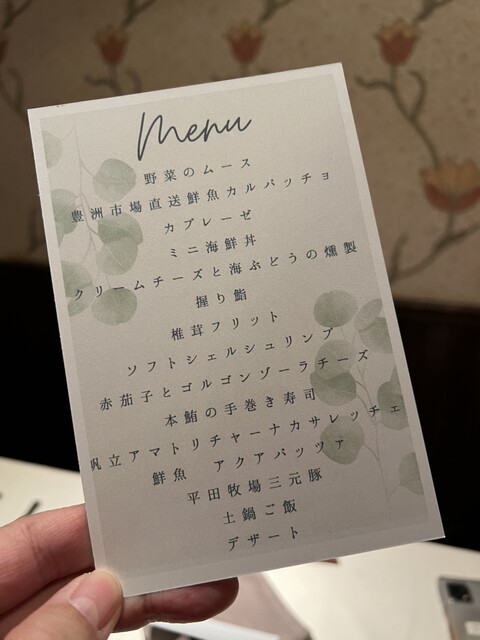 Menu
野菜のムース
豊洲市場直送鮮魚カルパッチョ
カプレーゼ
ミニ海鮮丼
クリームチーズと海ぶどうの燻製
握り鮨
椎茸フリット
ソフトシェルシュリンプ
赤茄子とゴルゴンゾーラチーズ
本鮪の手巻き寿司
帆立アマトリチャーナカサレッチェ
鮮魚 アクアパッツァ
平田牧場三元豚
土鍋ご飯
デザート